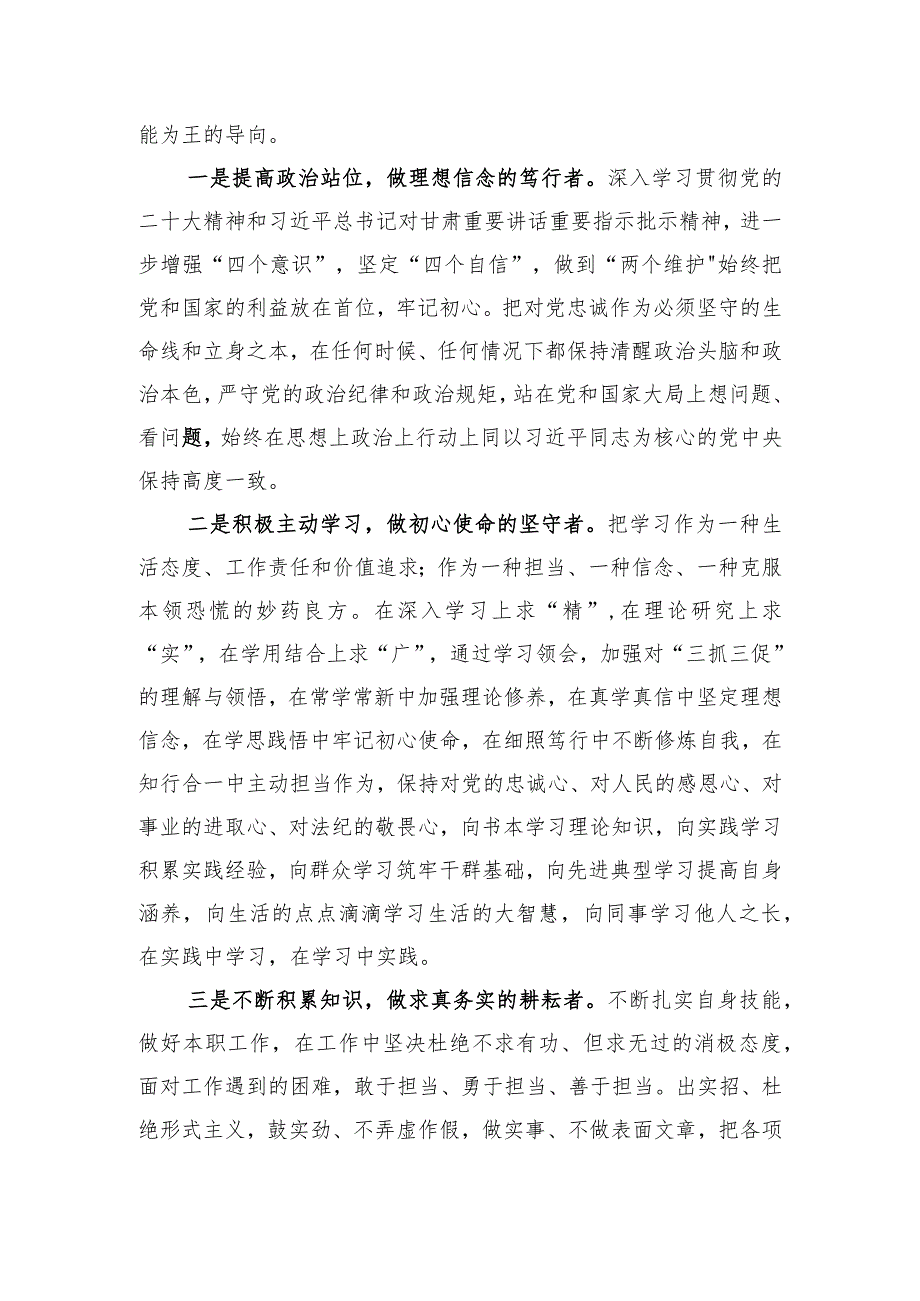 能为王的导向。
一是提高政治站位，做理想信念的笃行者。深入学习贯彻党的
二十大精神和习近平总书记对甘肃重要讲话重要指示批示精神，进一
步增强“四个意识”，坚定“四个自信”，做到“两个维护"始终把
党和国家的利益放在首位，牢记初心。把对党忠诚作为必须坚守的生
命线和立身之本，在任何时候、任何情况下都保持清醒政治头脑和政
治本色，严守党的政治纪律和政治规矩，站在党和国家大局上想问题、
看问题，始终在思想上政治上行动上同以习近平同志为核心的党中央
保持高度一致。
二是积极主动学习，做初心使命的坚守者。把学习作为一种生
活态度、工作责任和价值追求；作为一种担当、一种信念、一种克服
本领恐慌的妙药良方。在深入学习上求“精”,在理论研究上求
“实”，在学用结合上求“广”，通过学习领会，加强对“三抓三促”
的理解与领悟，在常学常新中加强理论修养，在真学真信中坚定理想
信念，在学思践悟中牢记初心使命，在细照笃行中不断修炼自我，在
知行合一中主动担当作为，保持对党的忠诚心、对人民的感恩心、对
事业的进取心、对法纪的敬畏心，向书本学习理论知识，向实践学习
积累实践经验，向群众学习筑牢干群基础，向先进典型学习提高自身
涵养，向生活的点点滴滴学习生活的大智慧，向同事学习他人之长，
在实践中学习，在学习中实践。
三是不断积累知识，做求真务实的耕耘者。不断扎实自身技能，
做好本职工作，在工作中坚决杜绝不求有功、但求无过的消极态度，
面对工作遇到的困难，敢于担当、勇于担当、善于担当。出实招、杜
绝形式主义，鼓实劲、不弄虚作假，做实事、不做表面文章，把各项